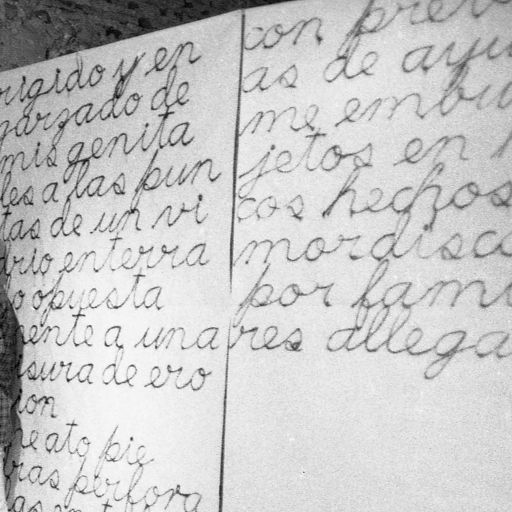 rigido y en
garzado de
mis genita
les a las pun
tas de un vi
drio enterra
o opuesta
mente a una
isura de ero
ion
me ato pie
dras perfora
con prev
as de ayu
me embu
jetos en
cos hechos
mordisco
por fami
res allega